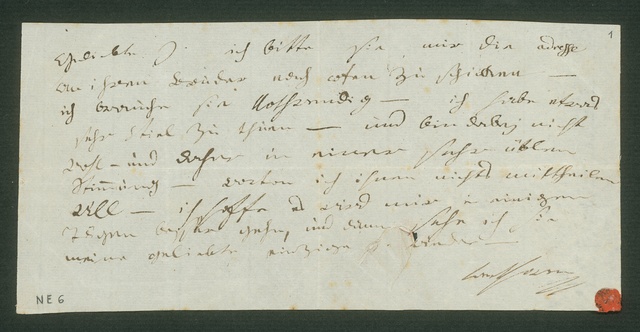 Geliebte J. ich bitte sie mir die adresse
an ihren Bruder nach ofen zu schicken —
ich brauche sie Nothwendig — ich habe etwas
sehr viel zu thuen — und bin dabej nicht
wohl — und daher in einer sehr üblen
Stimmung — worin ich ihnen nichts mittheilen
will — ich hoffe es wird mir in einigen
Tägen besser gehn, und dann sehe ich sie
meine geliebte einzige J. wieder
NE 6
1